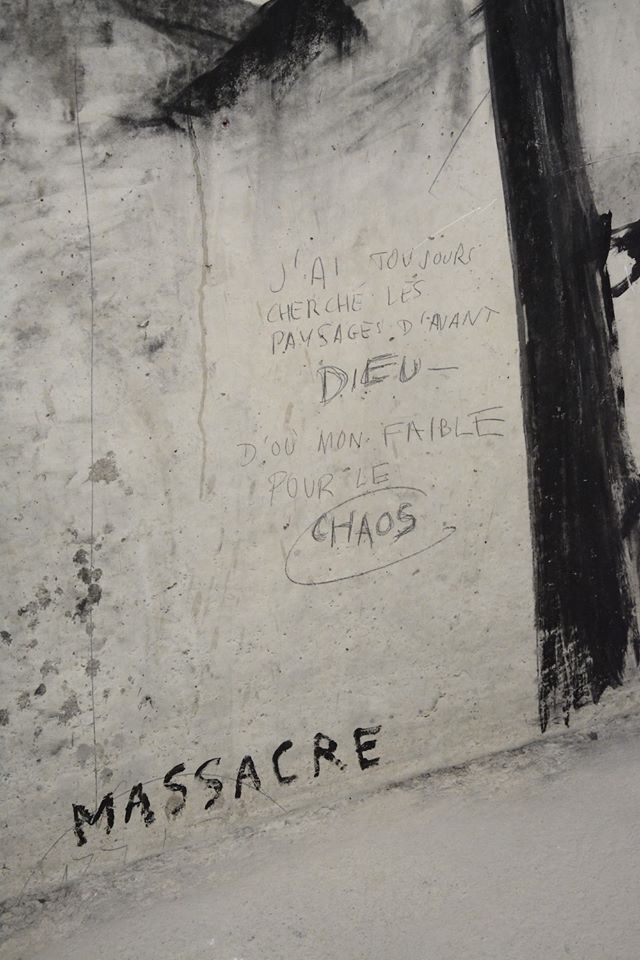 J'AI TOUJOURS
CHERCHÉ LES
PAYSAGES D'AVANT
DIEU —
D'OU MON FAIBLE
POUR LE
CHAOS
MASSACRE